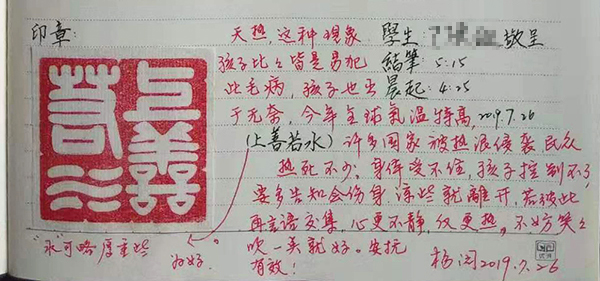 印章:
上善
若水
天热,这种现象
孩子比比皆是易犯
此毛病,孩子也出
于无奈,今年全球气温特高,
學生: 敬呈
結筆: 5:15
晨起: 4:25
2019.7.26
(上善若水)许多国家被热浪侵袭民众
热死不少,身体受不住,孩子控制不了
要多告知会伤身,凉些就離开,若彼此
再言语交集,心更不静,仅更热,不妨笑笑
吹一关就好。安抚
有效!
"水"可略厚重些
为好.
杨闵2019.7.26